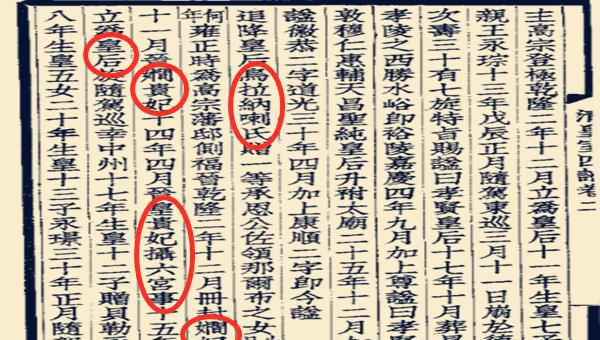 主高宗登極乾隆二年十二月立為皇后十一年生皇七子
親王永琮十三年戊辰正月隨駕東巡三月十一日崩於德
次壽三十有七旋特旨賜諡曰孝賢皇后十七年十月葬
孝陵之西勝水峪即裕陵嘉慶四年九月加上尊諡曰孝賢
敦穆仁惠輔天昌聖純皇后升祔太廟二十五年十二月加
諡徽恭二字道光三十年四月加上康順二字即今諡
追降皇后烏拉納喇氏贈一等承恩公佐領那爾布之女
何年雍正時為高宗藩邸側福晉乾隆二年十二月冊封嫻妃
十一月晉嫻貴妃十四年四月晉皇貴妃攝六宮事十五年
立為皇后旋隨駕巡幸中州十七年生皇十二子贈貝勒
八年生皇五女二十年生皇十三子永璟三十年正月隨
卷二